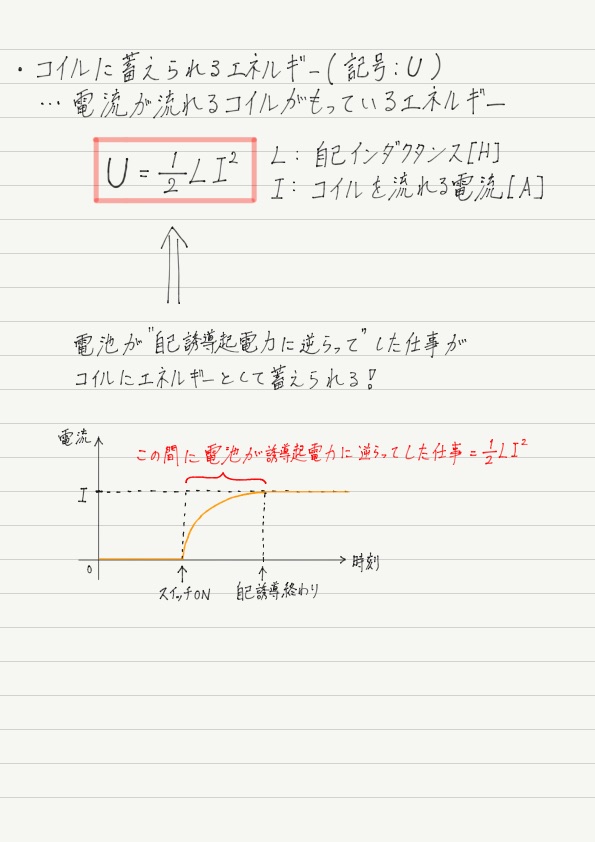 ・コイルに蓄えられるエネルギー(記号:U)
… 電流が流れるコイルがもっているエネルギー
U = 1/2 L I²
L : 自己インダクタンス[H]
I : コイルを流れる電流[A]
電池が"自己誘導起電力に逆らって"した仕事が
コイルにエネルギーとして蓄えられる!
電流
この間に電池が誘導起電力に逆らってした仕事 = 1/2 L I²
I
0
時刻
スイッチON
自己誘導終わり